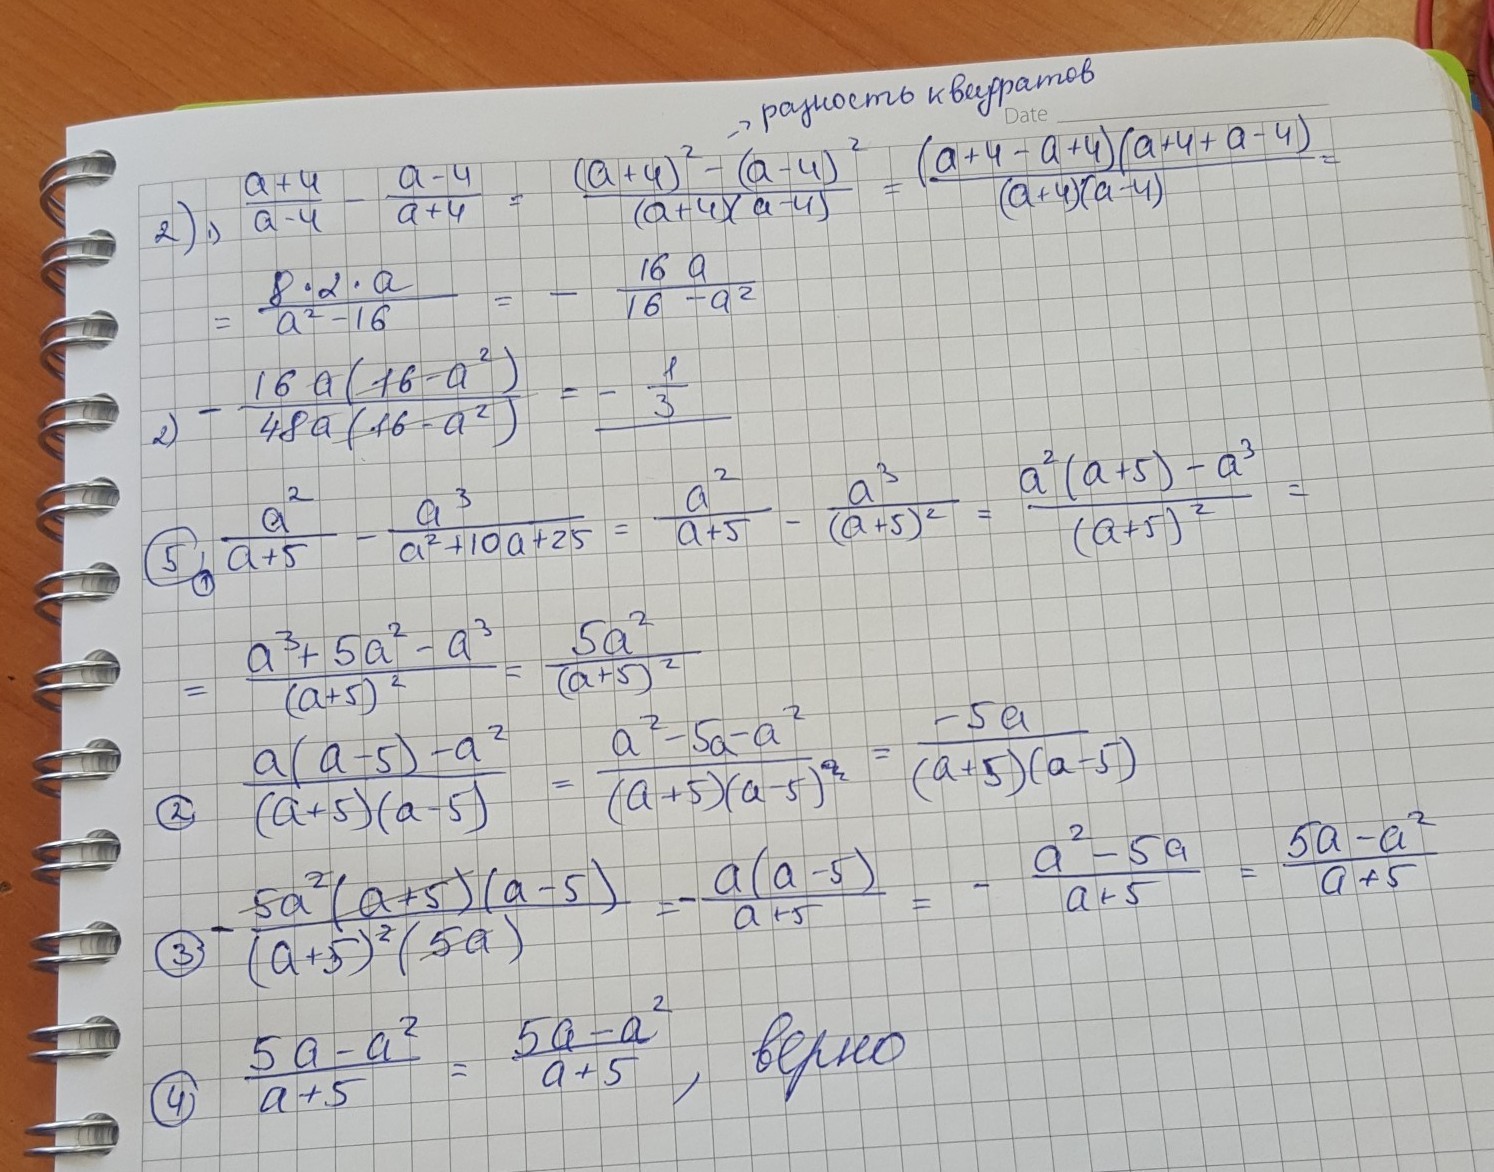 → разность квадратов
Date
2) 1) (a+4)/(a-4) - (a-4)/(a+4) = ((a+4)² - (a-4)²)/((a+4)(a-4)) = ((a+4-a+4)(a+4+a-4))/((a+4)(a-4)) =
= (8·2·a)/(a²-16) = - (16a)/(16-a²)
2) - (16a(16-a²))/(48a(16-a²)) = - 1/3
5, 1 a²/(a+5) - a³/(a²+10a+25) = a²/(a+5) - a³/(a+5)² = (a²(a+5)-a³)/(a+5)² =
= (a³+5a²-a³)/(a+5)² = 5a²/(a+5)²
2 (a(a-5)-a²)/((a+5)(a-5)) = (a²-5a-a²)/((a+5)(a-5)) = (-5a)/((a+5)(a-5))
3 - (5a²(a+5)(a-5))/((a+5)²(5a)) = - (a(a-5))/(a+5) = - (a²-5a)/(a+5) = (5a-a²)/(a+5)
4 (5a-a²)/(a+5) = (5a-a²)/(a+5), верно